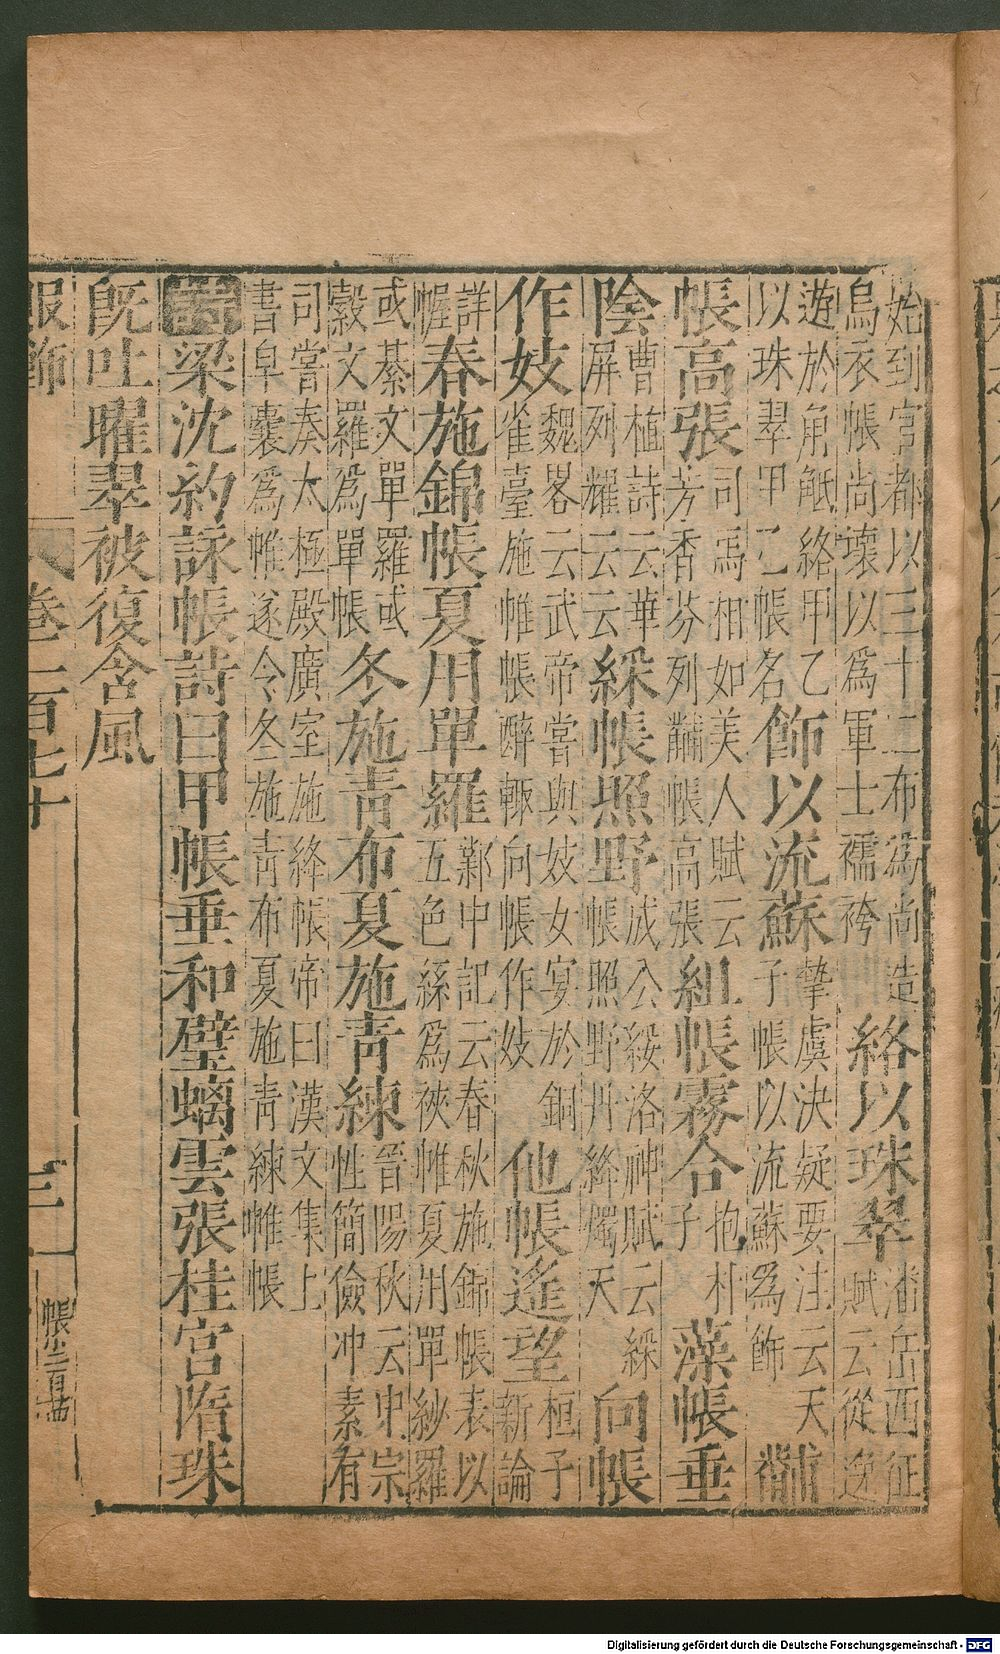 始到官都以三十二布為尚造
烏衣帳尚壞以為軍士襦袴
絡以珠翠
潘岳西征
賦云從逸
遊於角觝絡甲乙
以珠翠甲乙帳名
飾以流蘇
摯虞決疑要注云天
子帳以流蘇為飾
黼
帳高張
司馬相如美人賦云
芳香芬列黼帳高張
組帳霧合
抱朴
子
藻帳垂
陰
曹植詩云華
屏列耀云云
綵帳照野
成公綏洛神賦云綵
帳照野丹絳燭天
向帳
作妓
魏畧云武帝嘗與妓女宴於銅
雀臺施帷帳醉輒向帳作妓
他帳遙望
桓子
新論
詳
幄
春施錦帳夏用單羅
鄴中記云春秋施錦帳表以
五色絲為裌帷夏用單紗羅
或綦文單羅或
縠文羅為單帳
冬施青布夏施青練
晉陽秋云中宗
性簡儉冲素有
司嘗奏太極殿廣室施絳帳帝曰漢文集上
書皁囊為帷遂令冬施青布夏施青練帷帳
梁沈約詠帳詩曰甲帳垂和璧螭雲張桂宮隋珠
既吐曜翠被復含風
服飾 卷一百七十 三
Digitalisierung gefördert durch die Deutsche Forschungsgemeinschaft - DFG